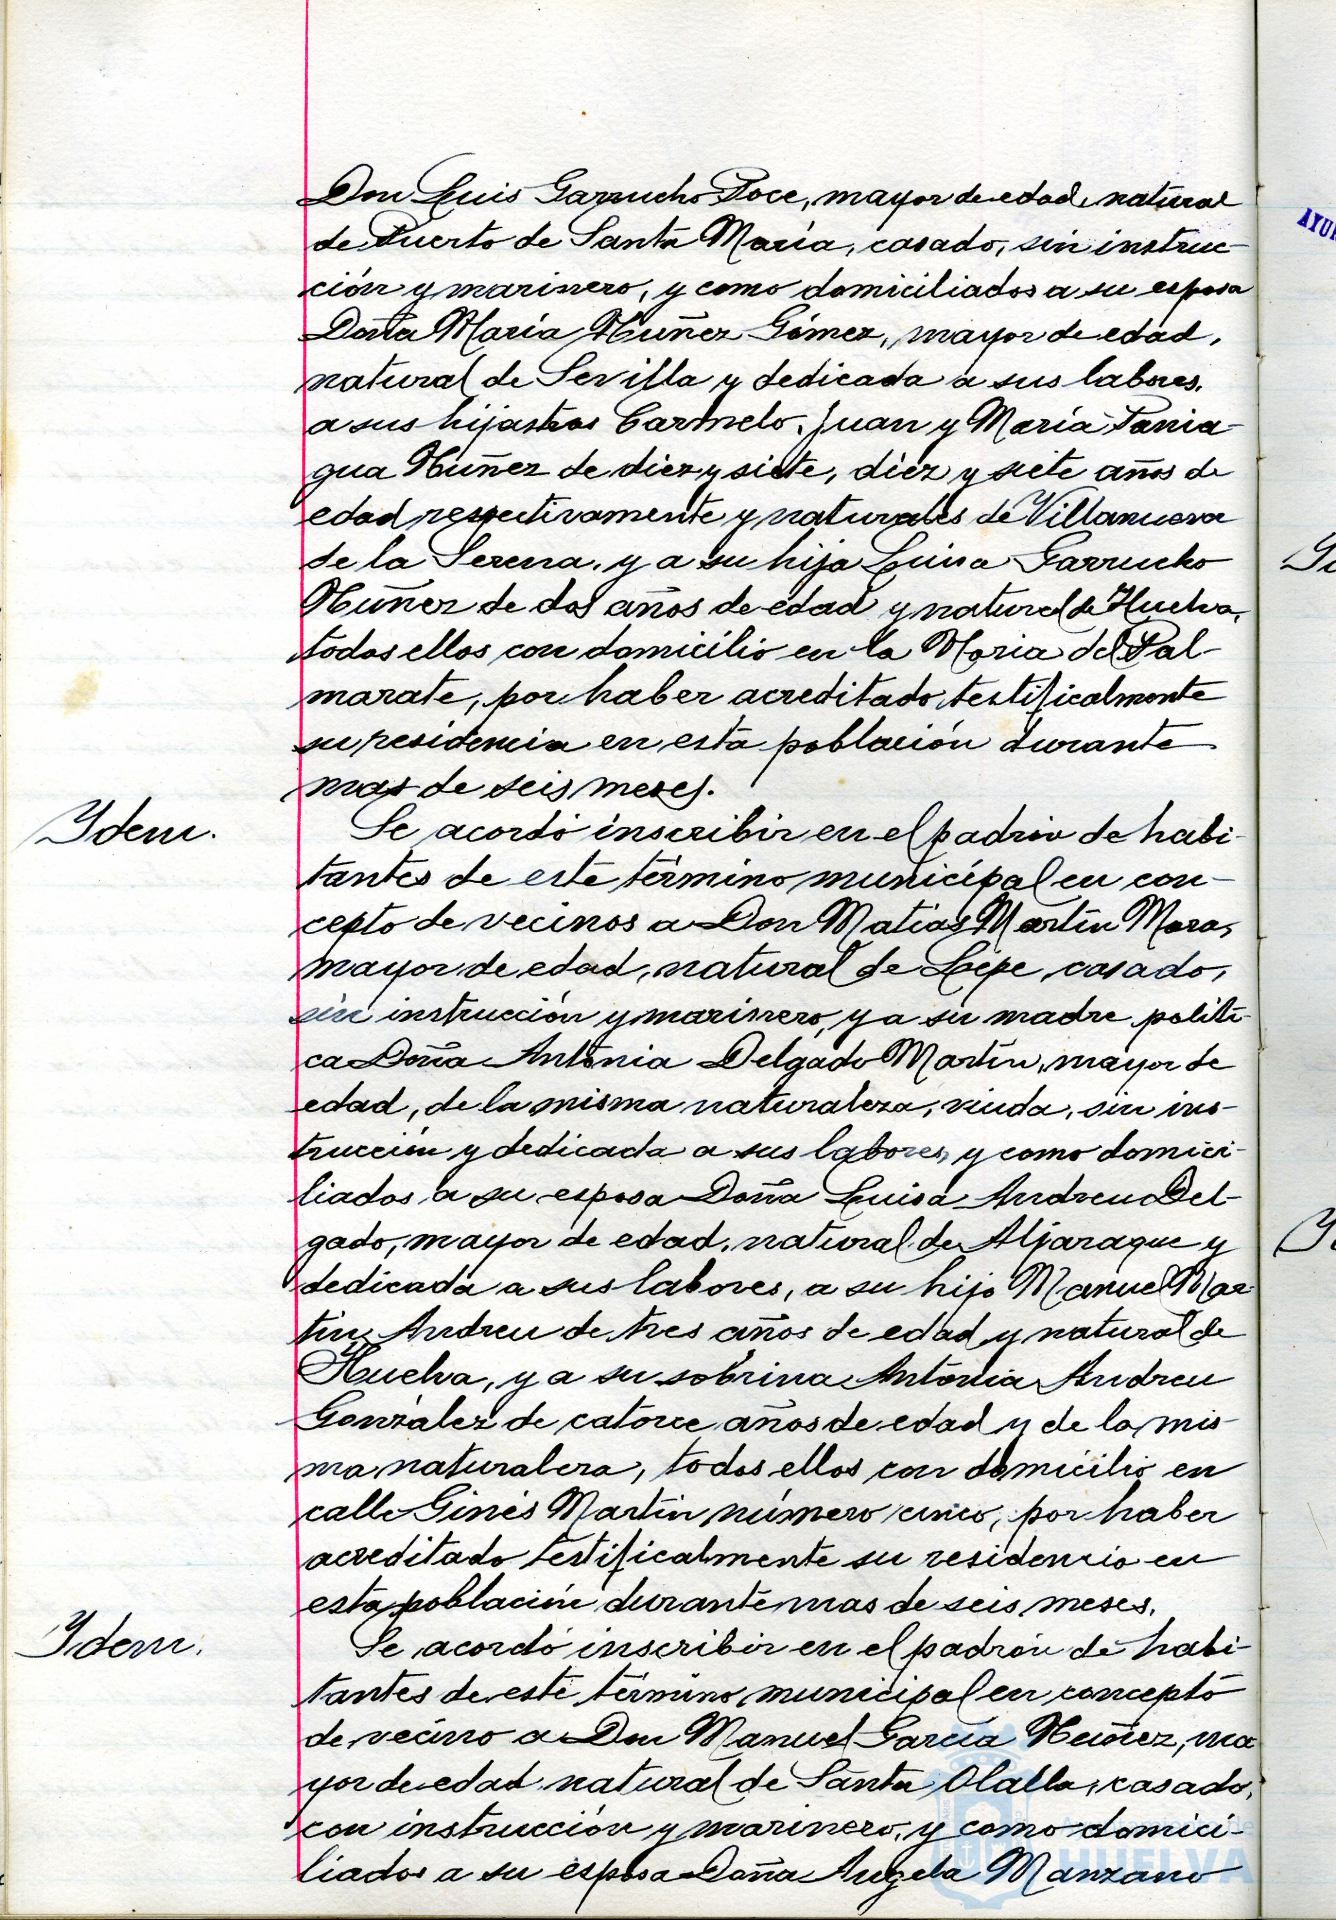 Don Luis Garrucho Poce, mayor de edad, natural
de Puerto de Santa María, casado, sin instruc-
ción y marinero, y como domiciliados a su esposa
Doña María Nuñez Gómez, mayor de edad,
natural de Sevilla y dedicada a sus labores,
a sus hijastros Carmelo, Juan y María Pania-
gua Nuñez de diez y siete, diez y siete años de
edad respectivamente y naturales de Villanueva
de la Serena, y a su hija Luisa Garrucho
Nuñez de dos años de edad y natural de Huelva,
todos ellos con domicilio en la Noria del Pal-
marate, por haber acreditado testificalmente
su residencia en esta población durante
mas de seis meses.
Ydem.
Se acordó inscribir en el padrón de habi-
tantes de este término municipal en con-
cepto de vecinos a Don Matías Martín Mora,
mayor de edad, natural de Lepe, casado,
sin instrucción y marinero, y a su madre políti-
ca Doña Antonia Delgado Martín, mayor de
edad, de la misma naturaleza, viuda, sin ins-
trucción y dedicada a sus labores, y como domici-
liados a su esposa Doña Luisa Andreu Del-
gado, mayor de edad, natural de Aljaraque y
dedicada a sus labores, a su hijo Manuel Mar
tín Andreu de tres años de edad y natural de
Huelva, y a su sobrina Antonia Andreu
González de catorce años de edad y de la mis-
ma naturaleza, todos ellos con domicilio en
calle Ginés Martín número cinco, por haber
acreditado testificalmente su residencia en
esta población durante mas de seis meses.
Ydem.
Se acordó inscribir en el padrón de habi-
tantes de este término municipal en concepto
de vecino a Don Manuel García Nuñez, ma
yor de edad natural de Santa Olalla, casado,
con instrucción y marinero, y como domici-
liados a su esposa Doña Angela Manzano
HUELVA